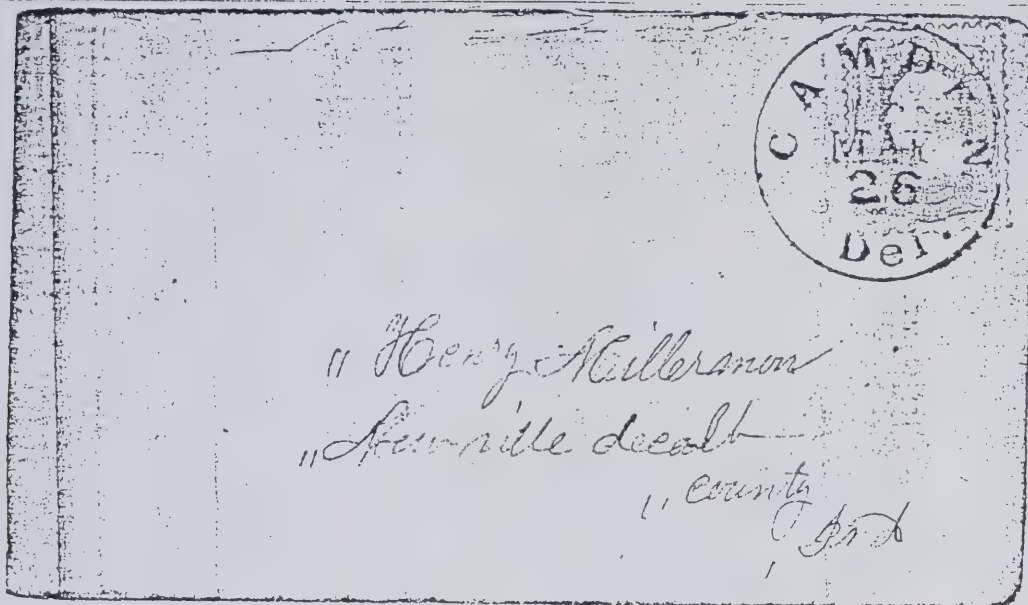 CAMDEN
MAR
26
Del.
" Henry Millermon
" Newville decalb
" County
Ind